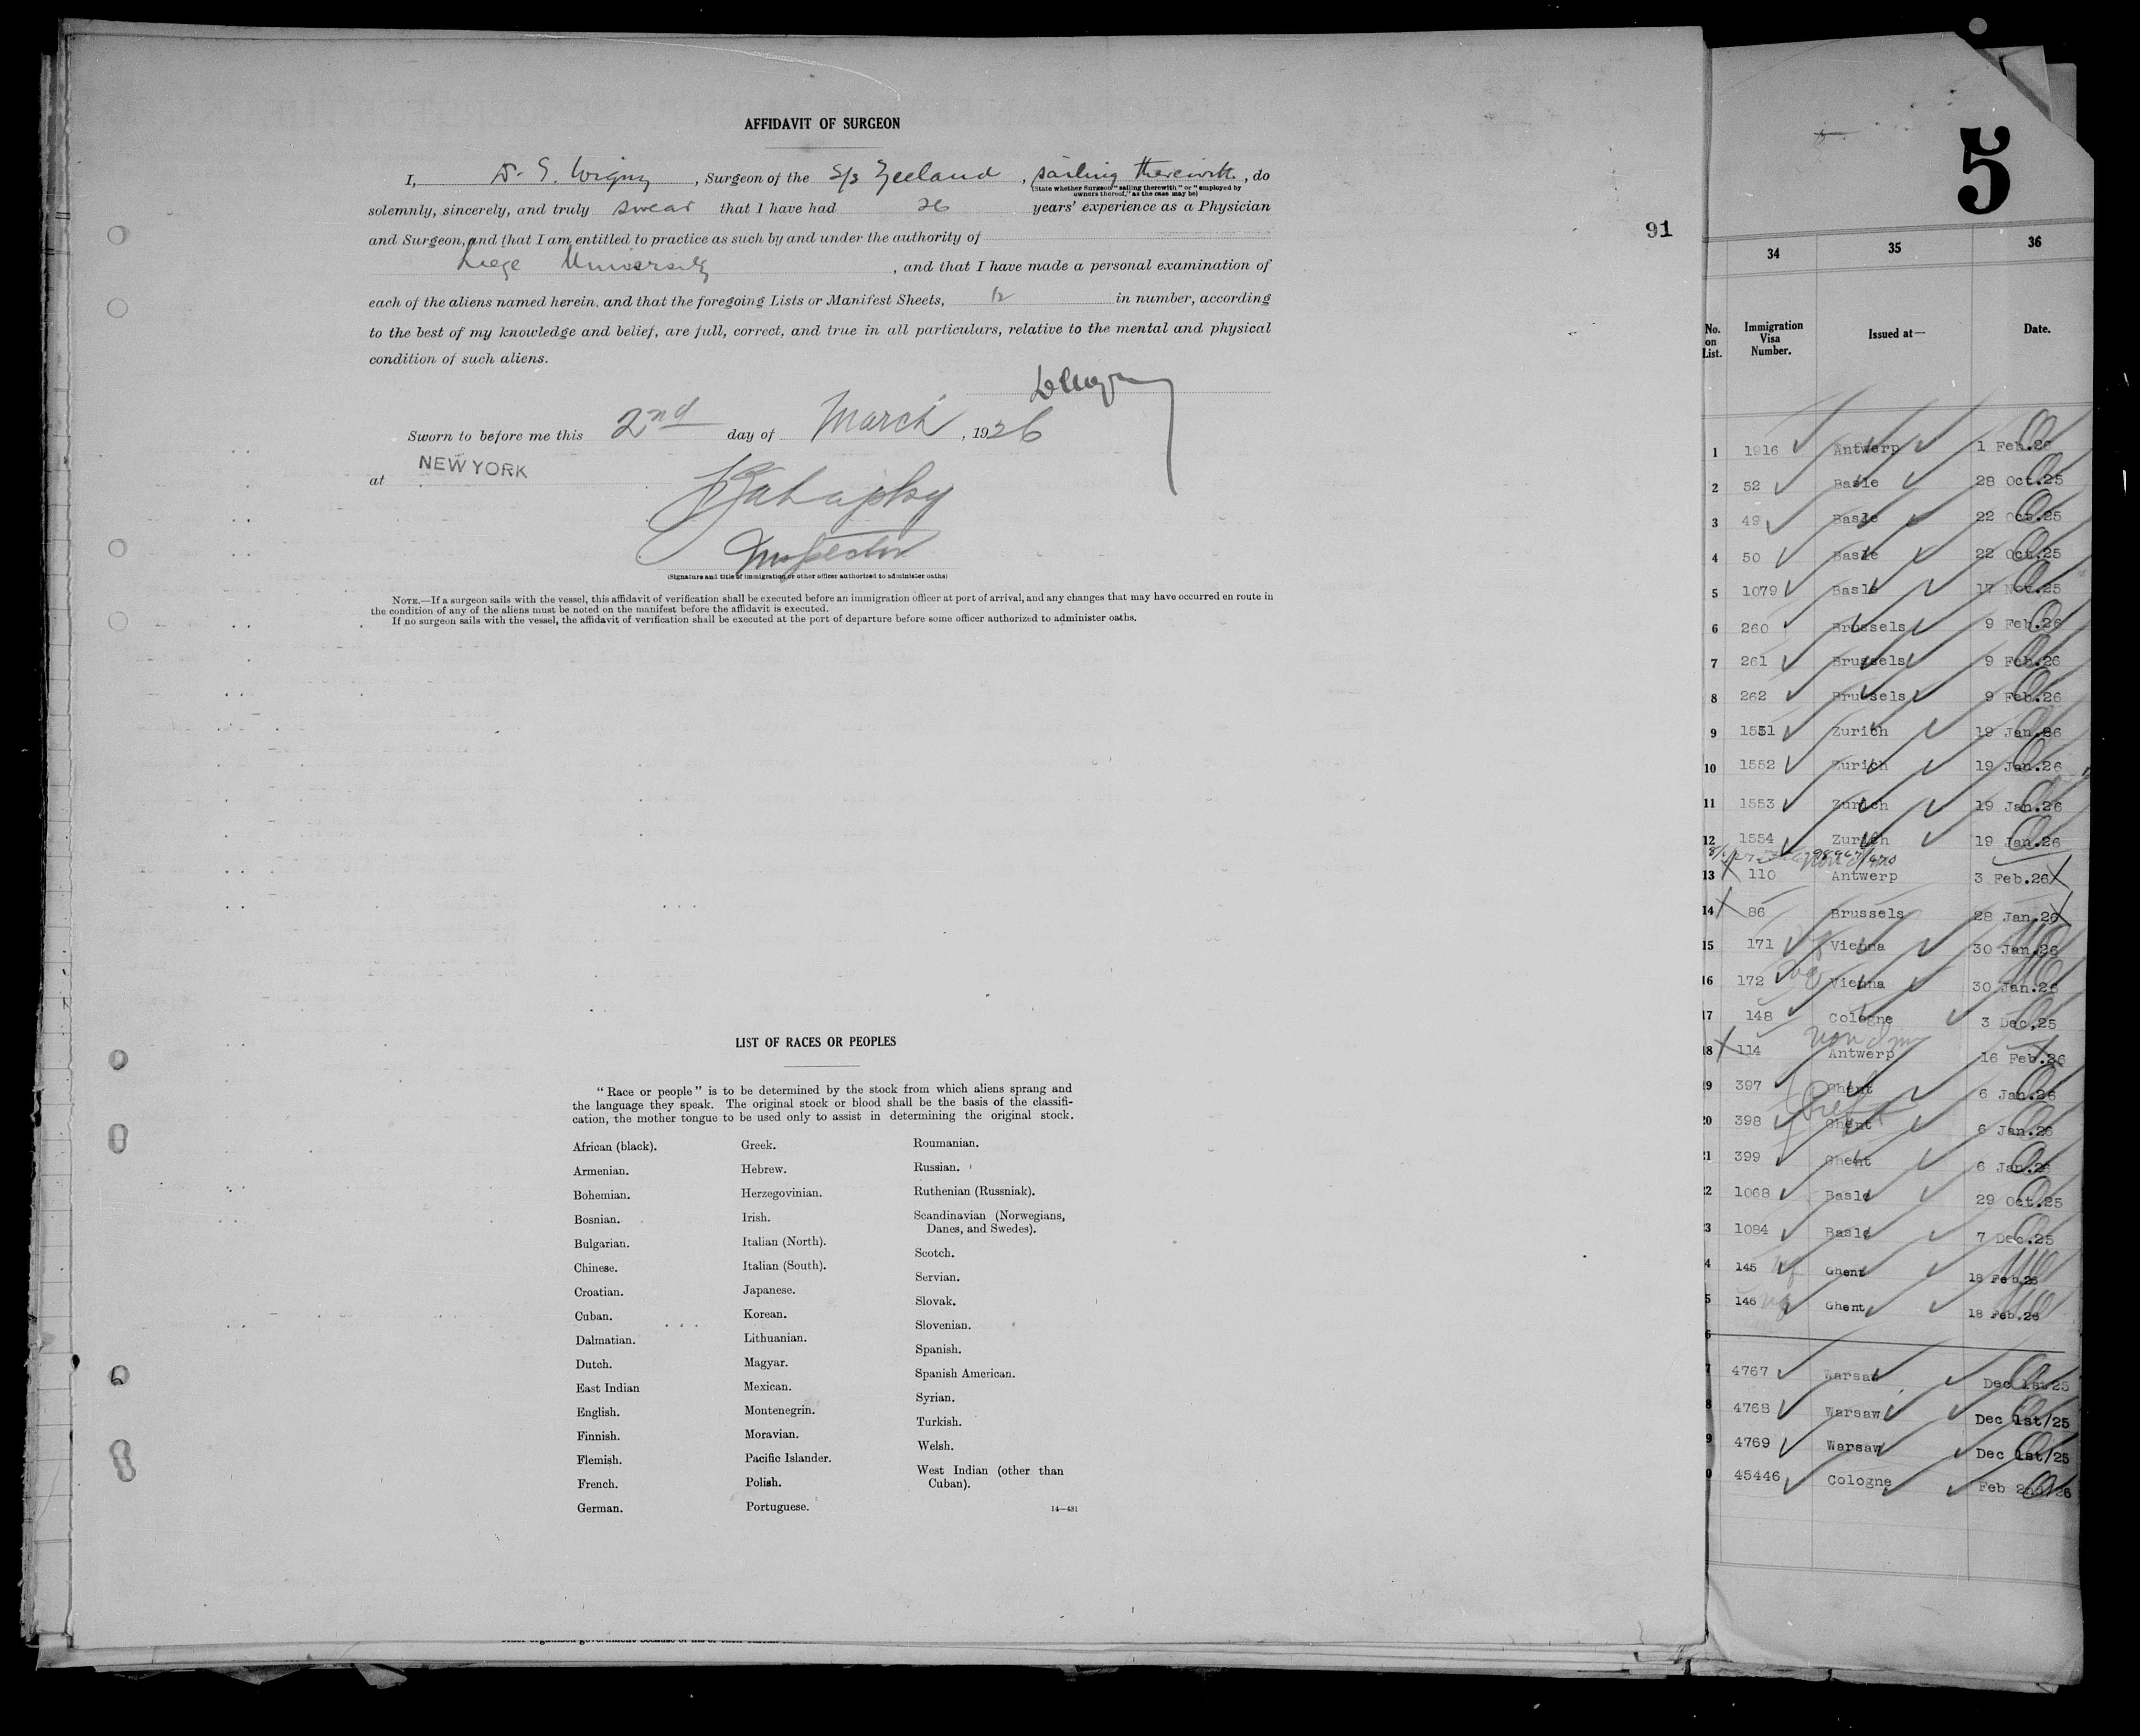 AFFIDAVIT OF SURGEON
I, Dr. E. Wigny, Surgeon of the S/s Zeeland, sailing therewith, do
(State whether Surgeon "sailing therewith" or "employed by owners thereof," as the case may be)
solemnly, sincerely, and truly swear that I have had 26 years' experience as a Physician
and Surgeon, and that I am entitled to practice as such by and under the authority of
Liege University, and that I have made a personal examination of
each of the aliens named herein, and that the foregoing Lists or Manifest Sheets, 12 in number, according
to the best of my knowledge and belief, are full, correct, and true in all particulars, relative to the mental and physical
condition of such aliens.
Sworn to before me this 2nd day of March, 1926
at NEW YORK
Inspector
(Signature and title of immigration or other officer authorized to administer oaths)
NOTE.—If a surgeon sails with the vessel, this affidavit of verification shall be executed before an immigration officer at port of arrival, and any changes that may have occurred en route in
the condition of any of the aliens must be noted on the manifest before the affidavit is executed.
If no surgeon sails with the vessel, the affidavit of verification shall be executed at the port of departure before some officer authorized to administer oaths.
LIST OF RACES OR PEOPLES
"Race or people" is to be determined by the stock from which aliens sprang and
the language they speak. The original stock or blood shall be the basis of the classifi-
cation, the mother tongue to be used only to assist in determining the original stock.
African (black).
Armenian.
Bohemian.
Bosnian.
Bulgarian.
Chinese.
Croatian.
Cuban.
Dalmatian.
Dutch.
East Indian
English.
Finnish.
Flemish.
French.
German.
Greek.
Hebrew.
Herzegovinian.
Irish.
Italian (North).
Italian (South).
Japanese.
Korean.
Lithuanian.
Magyar.
Mexican.
Montenegrin.
Moravian.
Pacific Islander.
Polish.
Portuguese.
Roumanian.
Russian.
Ruthenian (Russniak).
Scandinavian (Norwegians,
Danes, and Swedes).
Scotch.
Servian.
Slovak.
Slovenian.
Spanish.
Spanish American.
Syrian.
Turkish.
Welsh.
West Indian (other than
Cuban).
14—431
91
5
34 35 36
No. on List. Immigration Visa Number. Issued at— Date.
1 1916 Antwerp 1 Feb.26
2 52 Basle 28 Oct.25
3 49 Basle 22 Oct.25
4 50 Basle 22 Oct.25
5 1079 Basle 17 Nov.25
6 260 Brussels 9 Feb.26
7 261 Brussels 9 Feb.26
8 262 Brussels 9 Feb.26
9 1551 Zurich 19 Jan.26
10 1552 Zurich 19 Jan.26
11 1553 Zurich 19 Jan.26
12 1554 Zurich 19 Jan.26
13 110 Antwerp 3 Feb.26
14 86 Brussels 28 Jan.26
15 171 Vienna 30 Jan.26
16 172 Vienna 30 Jan.26
17 148 Cologne 3 Dec.25
18 114 Antwerp 16 Feb.26
9 397 Ghent 6 Jan.26
0 398 Ghent 6 Jan.26
1 399 Ghent 6 Jan.26
2 1068 Basle 29 Oct.25
3 1084 Basle 7 Dec.25
4 145 Ghent 18 Feb.26
5 146 Ghent 18 Feb.26
6
7 4767 Warsaw Dec 1st/25
8 4768 Warsaw Dec 1st/25
9 4769 Warsaw Dec 1st/25
0 45446 Cologne Feb 2nd/26